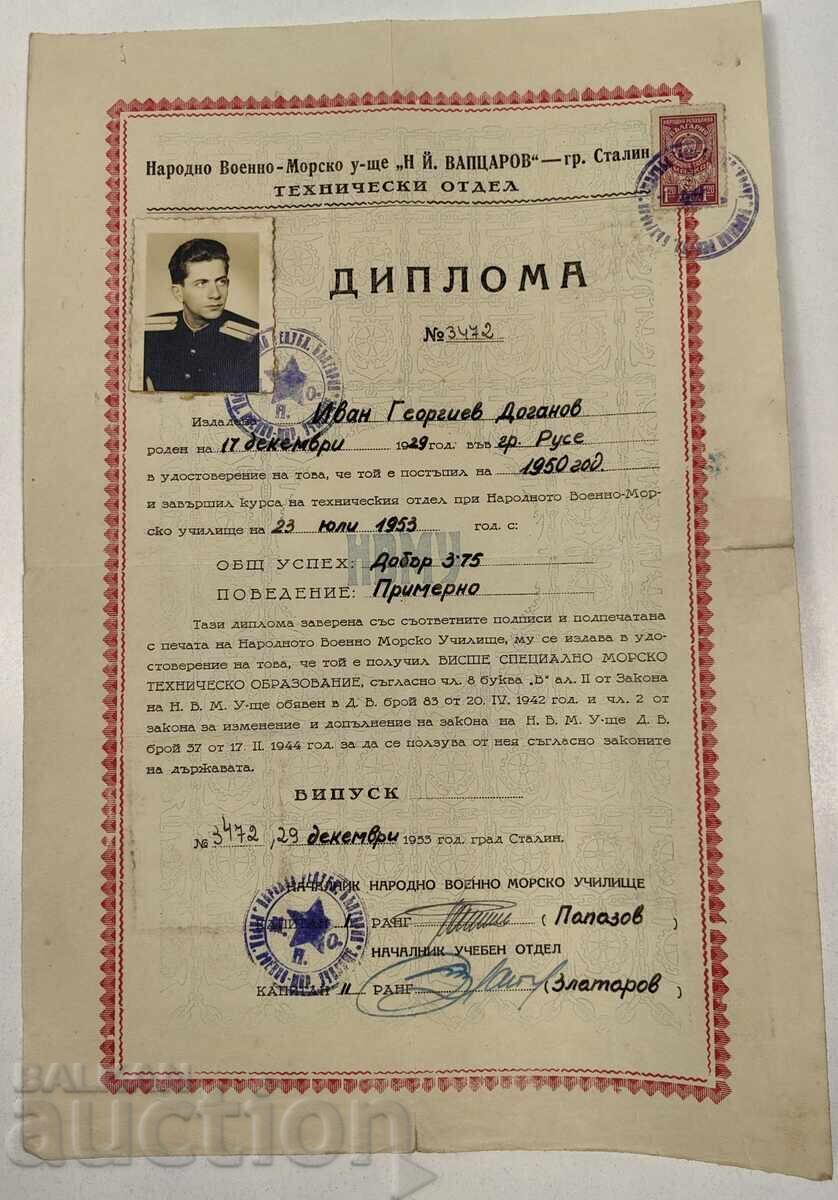 Народно Военно-Морско у-ще „Н Й. ВАПЦАРОВ" — гр. Сталин
ТЕХНИЧЕСКИ ОТДЕЛ
НАРОДНА РЕПУБЛИКА
БЪЛГАРИЯ
ДИПЛОМА
№ 3472
Издадена Иван Георгиев Доганов
роден на 17 декември 1929 год. във гр. Русе
в удостоверение на това, че той е постъпил на 1950 год.
и завършил курса на техническия отдел при Народното Военно-Мор-
ско училище на 23 юли 1953 год с:
НВМУ
ОБЩ УСПЕХ: Добър 3.75
ПОВЕДЕНИЕ: Примерно
Тази диплома заверена със съответните подписи и подпечатана
с печата на Народното Военно Морско Училище, му се издава в удо-
стоверение на това, че той е получил ВИСШЕ СПЕЦИАЛНО МОРСКО
ТЕХНИЧЕСКО ОБРАЗОВАНИЕ, съгласно чл. 8 буква „В" ал. II от Закона
на Н. В. М. У-ще обявен в Д. В. брой 83 от 20. IV. 1942 год. и чл. 2 от
закона за изменение и допълнение на закона на Н. В. М. У-ще Д. В.
брой 37 от 17. II. 1944 год. за да се ползува от нея съгласно законите
на държавата.
ВИПУСК
№ 3472, 29 декември 1953 год. град Сталин.
НАЧАЛНИК НАРОДНО ВОЕННО МОРСКО УЧИЛИЩЕ
КАПИТАН II РАНГ (Папазов)
НАЧАЛНИК УЧЕБЕН ОТДЕЛ
КАПИТАН II РАНГ (Златаров)
BALKAN
auction